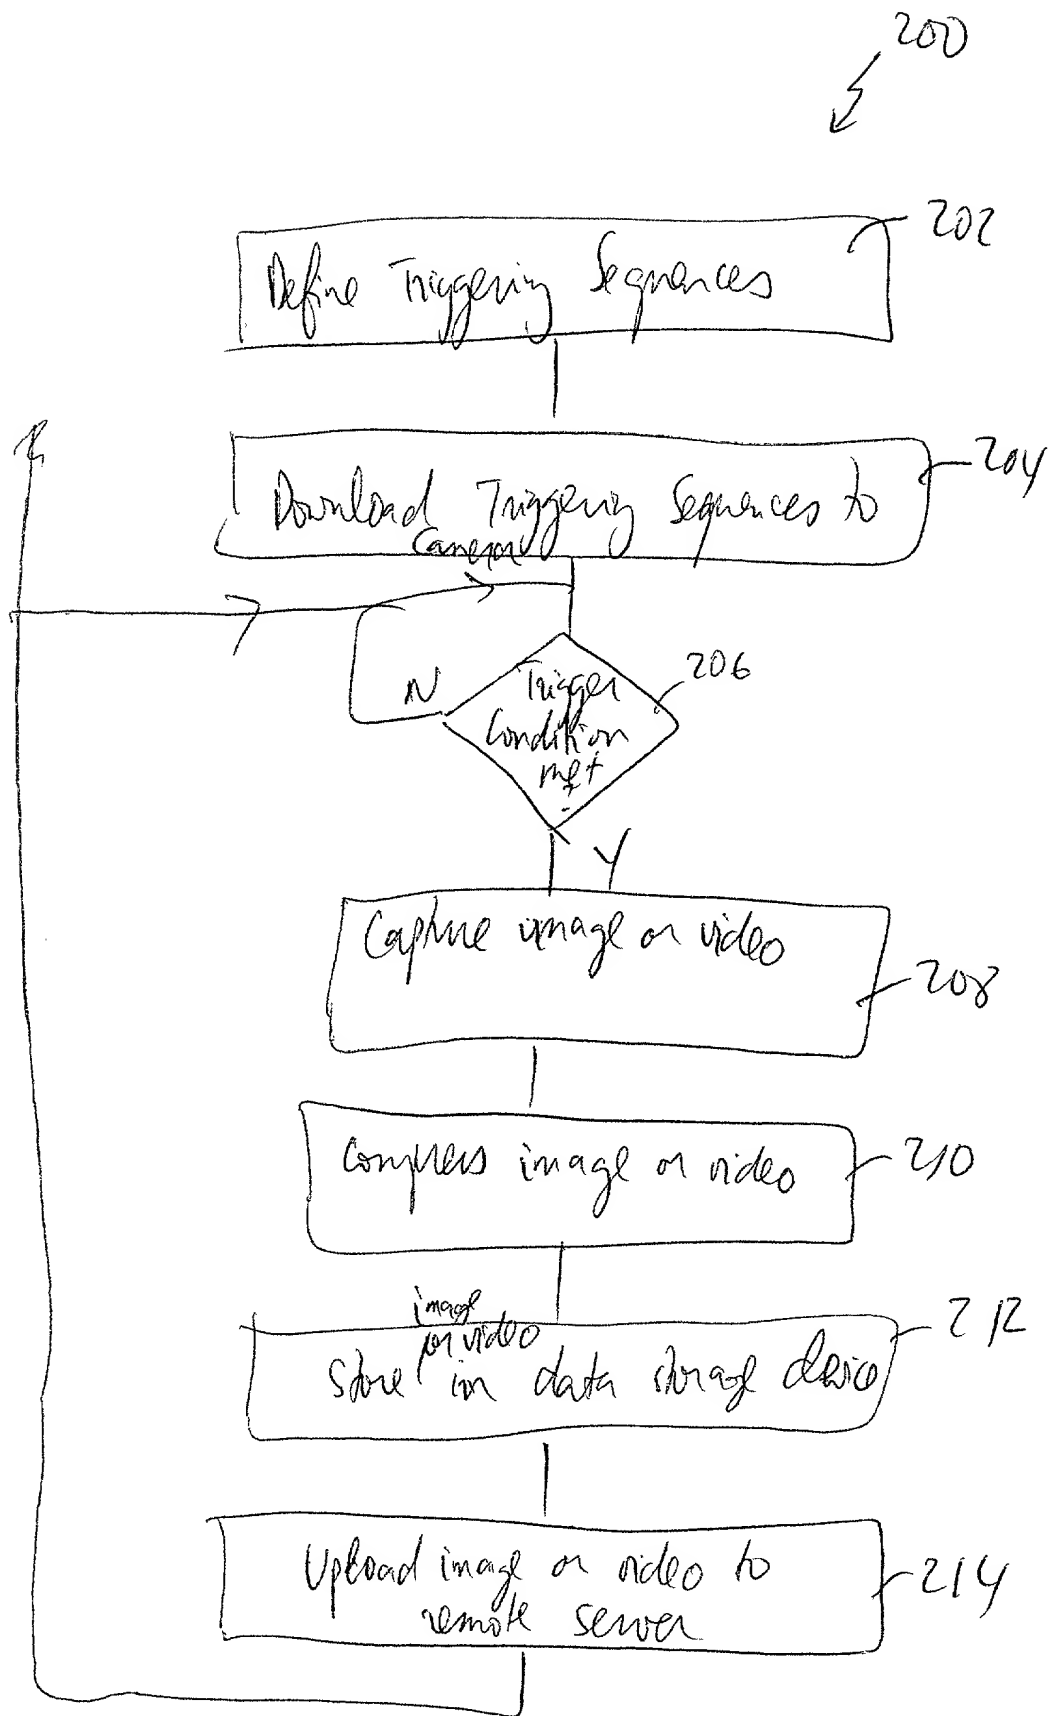 200
202
Define Triggering Sequences
204
Download Triggering Sequences to
Camera
206
N
Trigger
Condition
met
Y
Capture image or video
208
Compress image or video
210
image
or video
212
Store in data storage device
Upload image or video to
remote server
214